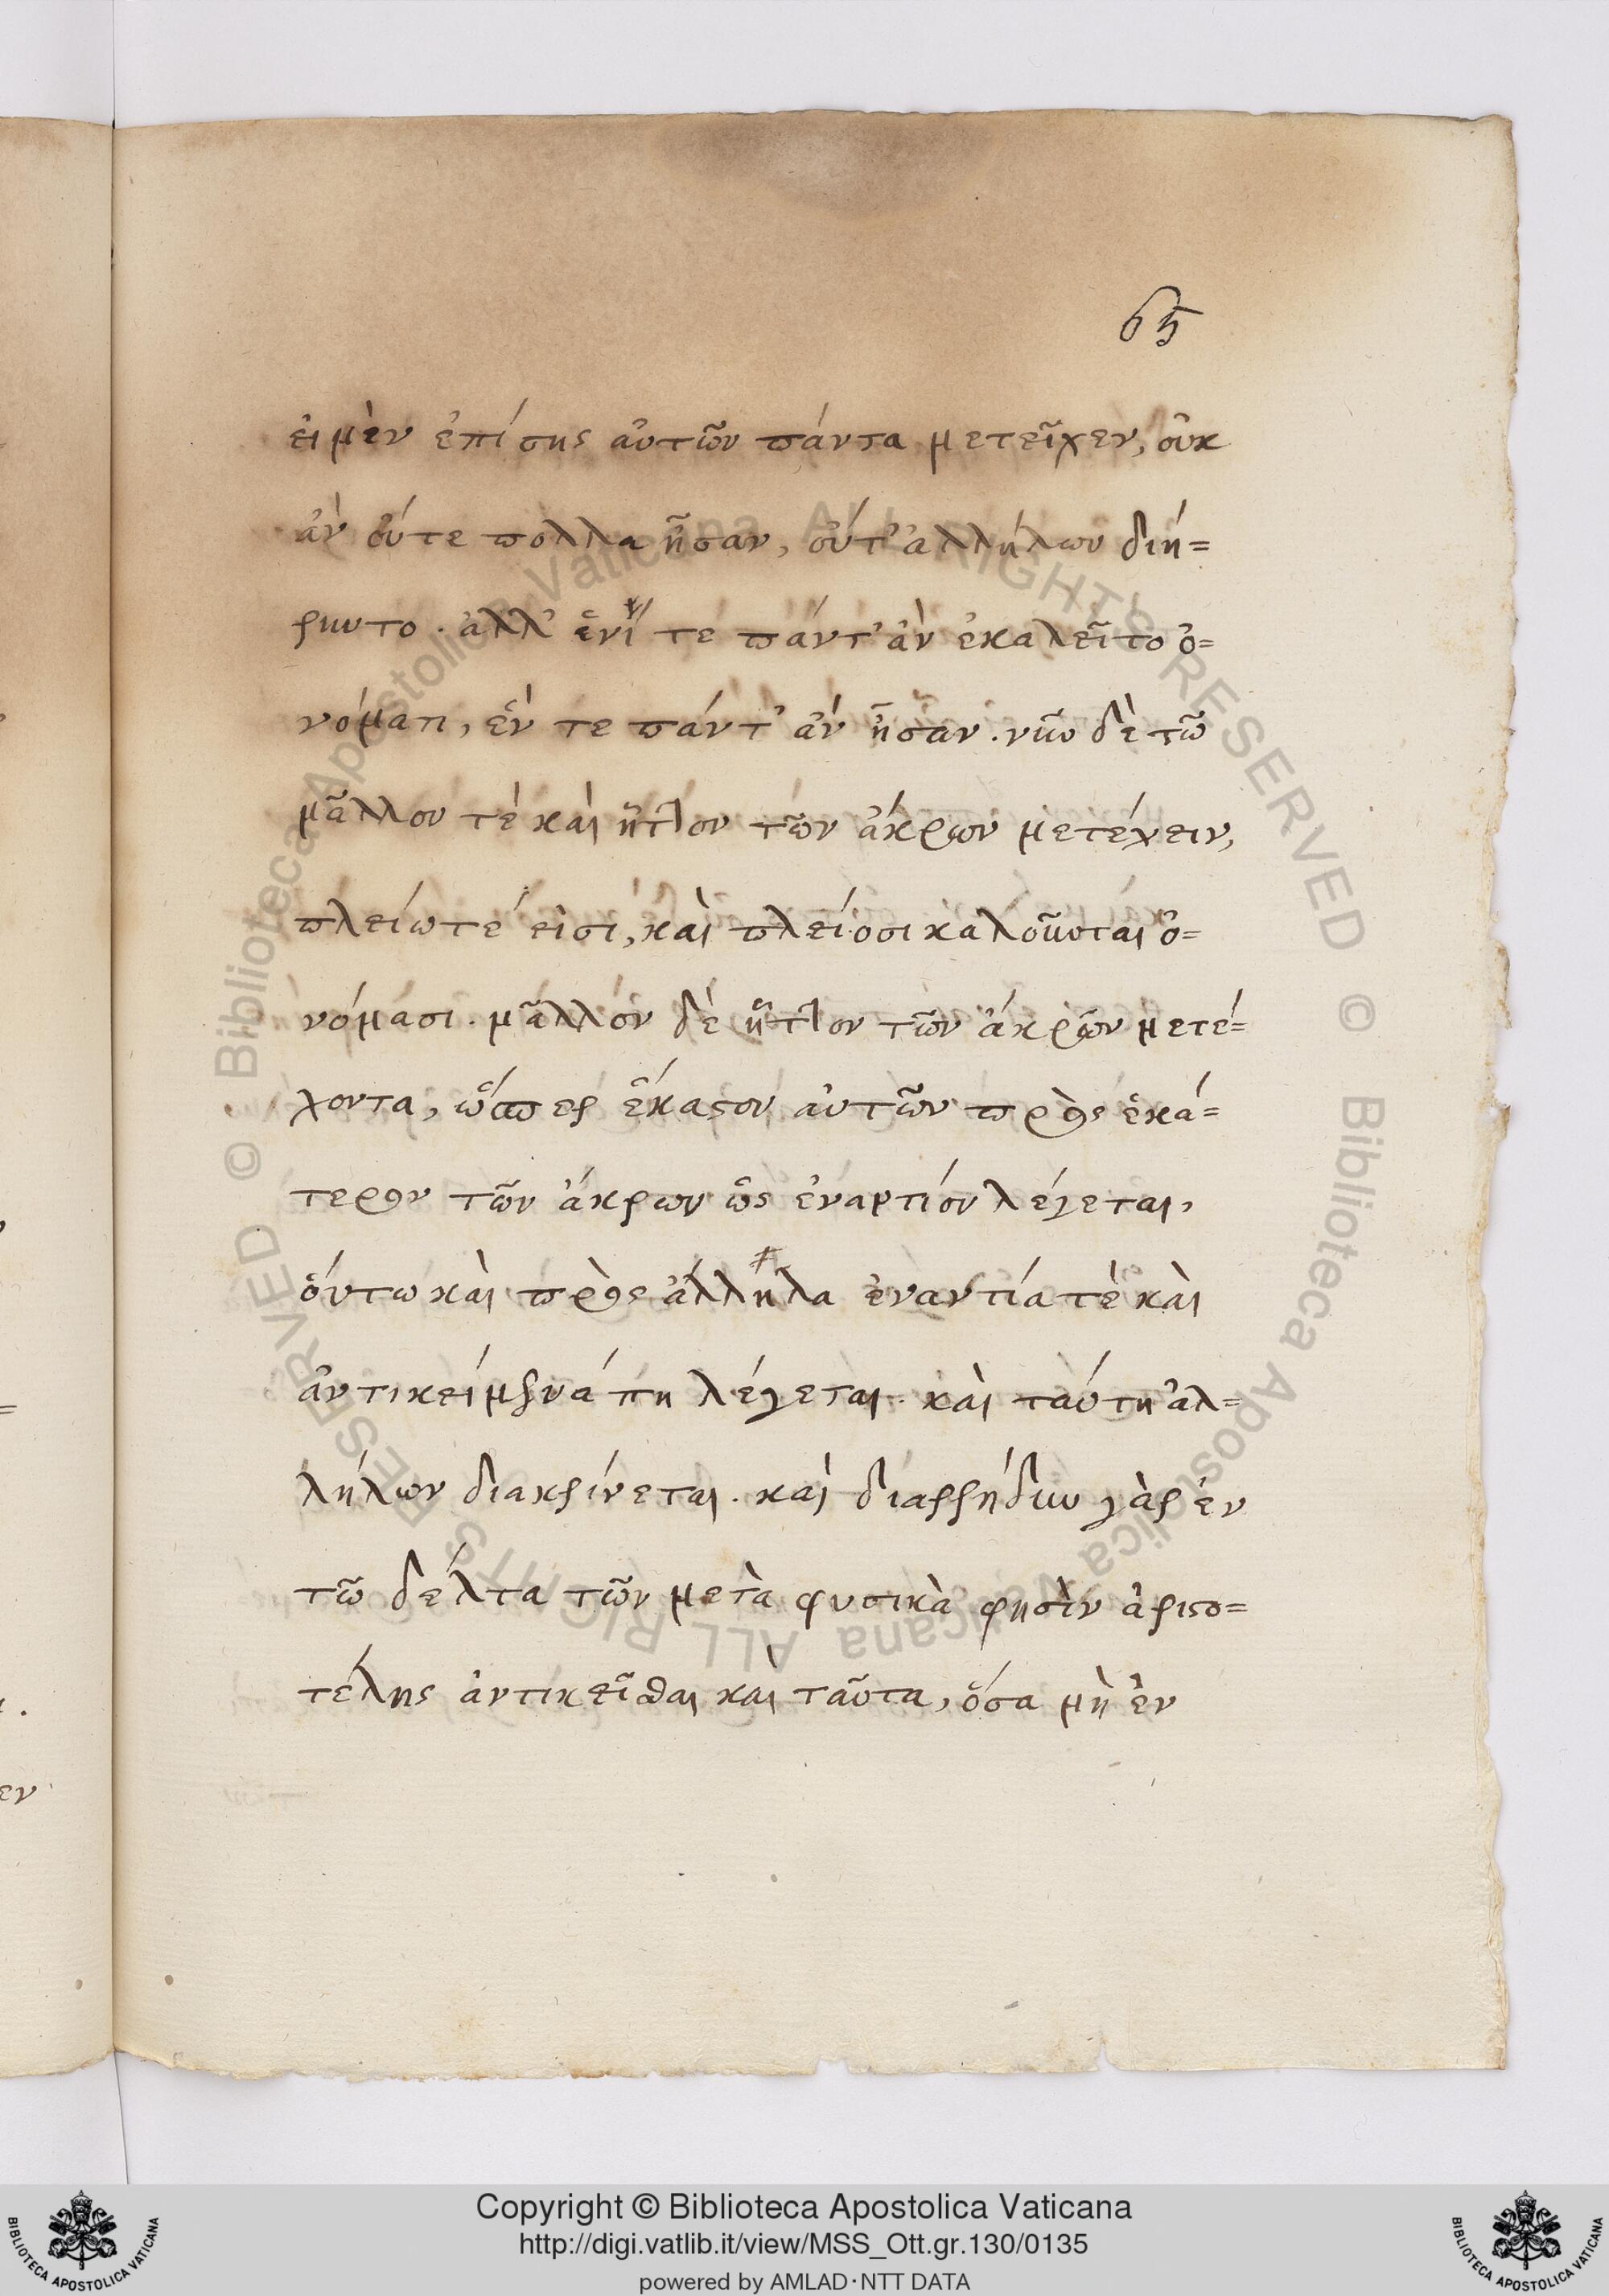 65
εἰ μὲν ἐπίσης αὐτῶν πάντα μετεῖχεν, οὐκ
ἂν οὔτε πολλὰ ἦσαν, οὔτ' ἀλλήλων διῄ=
ρηντο. ἀλλ' ἑνί τε πάντ' ἂν ἐκαλεῖτο ὀ=
νόματι, ἕν τε πάντ' ἂν ἦσαν. νῦν δὲ τῶ
μᾶλλον τὲ καὶ ἧττον τῶν ἄκρων μετέχειν,
πλείω τέ εἰσι, καὶ πλείοσι καλοῦνται ὀ=
νόμασι. μᾶλλον δὲ ἧττον τῶν ἄκρων μετέ=
χοντα, ὥσπερ ἕκαστον αὐτῶν πρὸς ἑκά=
τερον τῶν ἄκρων ὡς ἐναντίον λέγεται,
οὕτω καὶ πρὸς ἄλληλα ἐναντία τὲ καὶ
ἀντικείμενά πη λέγεται. καὶ ταύτη ἀλ=
λήλων διακρίνεται. καὶ διαρρήδην γὰρ ἐν
τῶ δέλτα τῶν μετὰ φυσικὰ φησὶν ἀριστο=
τέλης ἀντικεῖσθαι καὶ ταῦτα, ὅσα μὴ ἐν
εν
© Biblioteca Apostolica Vaticana ALL RIGHTS RESERVED © Biblioteca Apostolica Vaticana ALL RIGHTS RESERVED
BIBLIOTECA APOSTOLICA VATICANA
Copyright © Biblioteca Apostolica Vaticana
http://digi.vatlib.it/view/MSS_Ott.gr.130/0135
powered by AMLAD·NTT DATA
BIBLIOTECA APOSTOLICA VATICANA